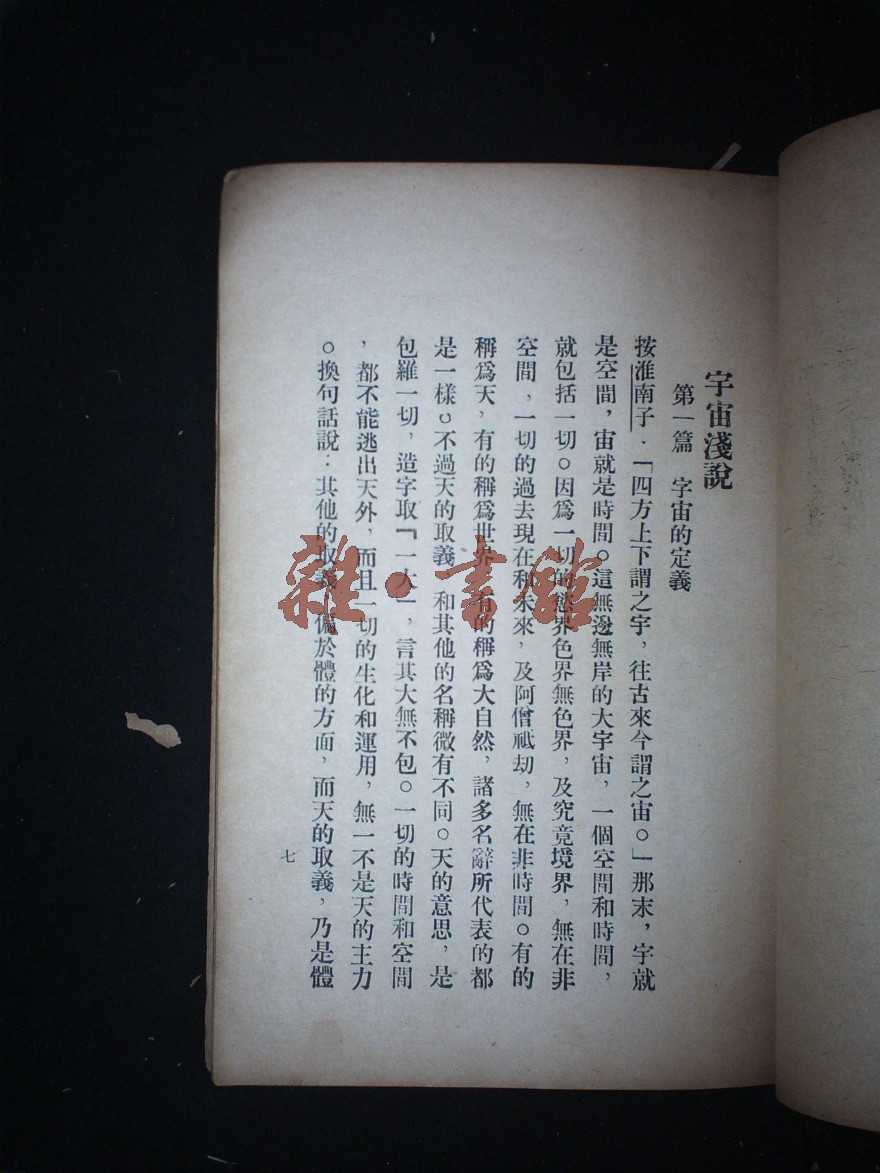 宇宙淺說
第一篇 宇宙的定義
按淮南子．「四方上下謂之宇，往古來今謂之宙。」那末，宇就
是空間，宙就是時間。這無邊無岸的大宇宙，一個空間和時間，
就包括一切。因爲一切的慾界色界無色界，及究竟境界，無在非
空間，一切的過去現在和未來，及阿僧祗劫，無在非時間。有的
稱爲天，有的稱爲世界，有的稱爲大自然，諸多名辭所代表的都
是一樣。不過天的取義 和其他的名稱微有不同。天的意思，是
包羅一切，造字取『一大』，言其大無不包。一切的時間和空間
，都不能逃出天外，而且一切的生化和運用，無一不是天的主力
。換句話說：其他的取義 偏於體的方面，而天的取義，乃是體
七
雜·書館